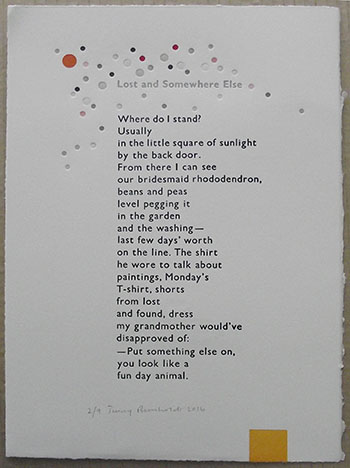 Lost and Somewhere Else
Where do I stand?
Usually
in the little square of sunlight
by the back door.
From there I can see
our bridesmaid rhododendron,
beans and peas
level pegging it
in the garden
and the washing—
last few days' worth
on the line. The shirt
he wore to talk about
paintings, Monday's
T-shirt, shorts
from lost
and found, dress
my grandmother would've
disapproved of:
—Put something else on,
you look like a
fun day animal.
2/9